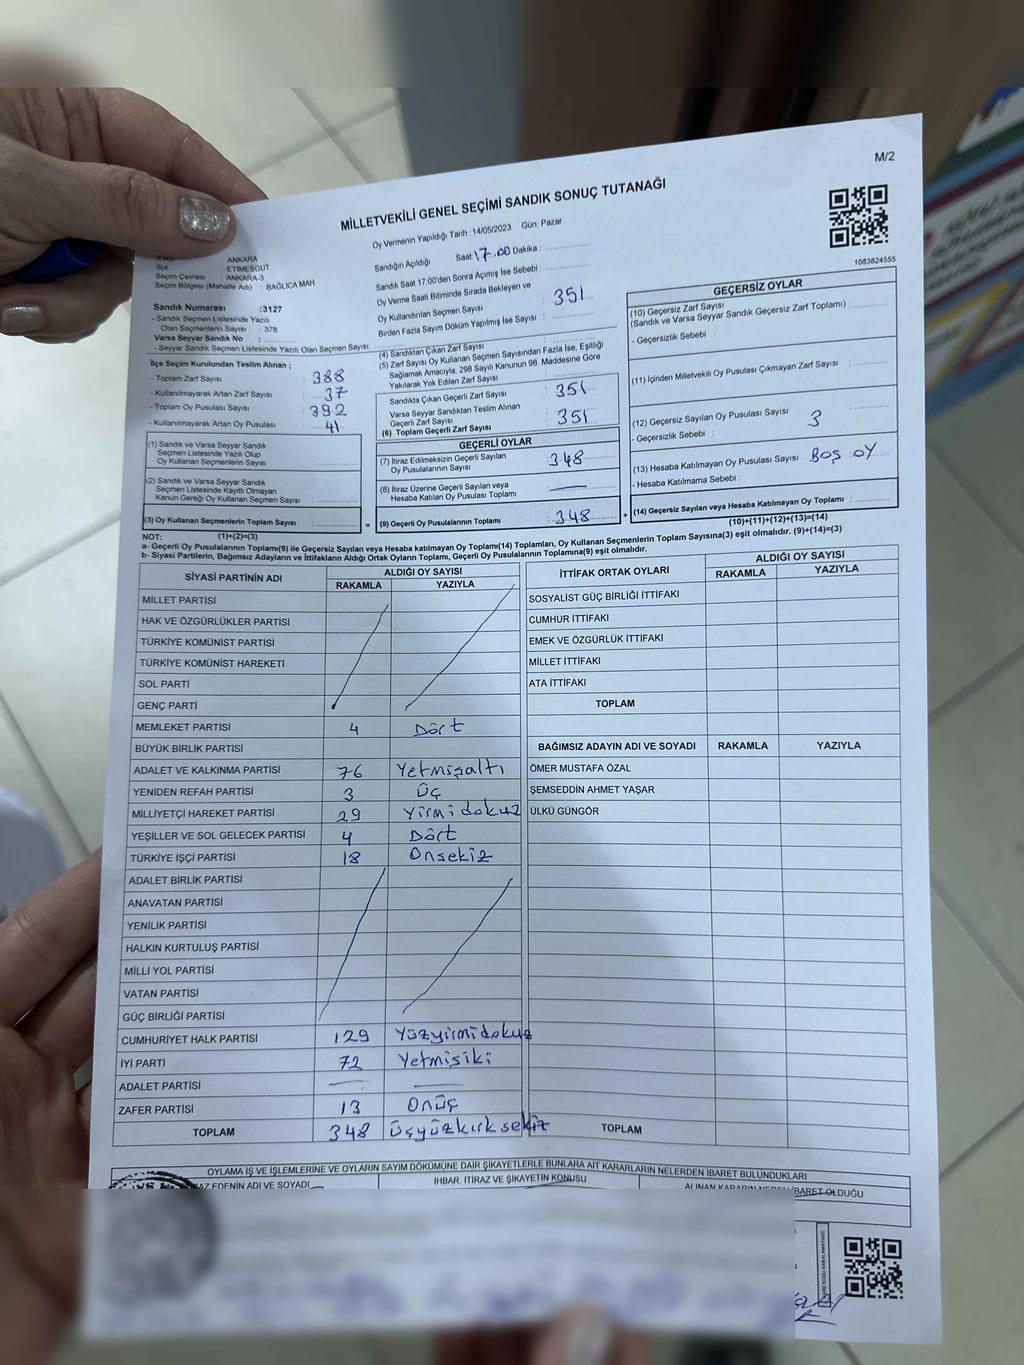 M/2
MİLLETVEKİLİ GENEL SEÇİMİ SANDIK SONUÇ TUTANAĞI
Oy Vermenin Yapıldığı Tarih : 14/05/2023 Gün: Pazar
1083824555
ANKARA
İlçe ETİMESGUT
Seçim Çevresi : ANKARA-3
Seçim Bölgesi (Mahalle Adı) : BAĞLICA MAH
Sandık Numarası :3127
- Sandık Seçmen Listesinde Yazılı
Olan Seçmenlerin Sayısı : 378
Varsa Seyyar Sandık No :
- Seyyar Sandık Seçmen Listesinde Yazılı Olan Seçmen Sayısı
Sandığın Açıldığı Saat: 17.00 Dakika :
Sandık Saat 17:00'den Sonra Açımış İse Sebebi :
Oy Verme Saati Bitiminde Sırada Bekleyen ve
Oy Kullandırılan Seçmen Sayısı : 351
Birden Fazla Sayım Döküm Yapılmış İse Sayısı :
İlçe Seçim Kurulundan Teslim Alınan ;
- Toplam Zarf Sayısı : 388
- Kullanılmayarak Artan Zarf Sayısı : 37
- Toplam Oy Pusulası Sayısı : 392
- Kullanılmayarak Artan Oy Pusulası : 41
(1) Sandık ve Varsa Seyyar Sandık
Seçmen Listesinde Yazılı Olup
Oy Kullanan Seçmenlerin Sayısı :
(2) Sandık ve Varsa Seyyar Sandık
Seçmen Listesinde Kayıtlı Olmayan
Kanun Gereği Oy Kullanan Seçmen Sayısı :
(3) Oy Kullanan Seçmenlerin Toplam Sayısı : =
(1)+(2)=(3)
(4) Sandıktan Çıkan Zarf Sayısı
(5) Zarf Sayısı Oy Kullanan Seçmen Sayısından Fazla İse, Eşitliği
Sağlamak Amacıyla, 298 Sayılı Kanunun 98. Maddesine Göre
Yakılarak Yok Edilen Zarf Sayısı
Sandıkta Çıkan Geçerli Zarf Sayısı : 351
Varsa Seyyar Sandıktan Teslim Alınan
Geçerli Zarf Sayısı
(6) Toplam Geçerli Zarf Sayısı : 351
GEÇERLİ OYLAR
(7) İtiraz Edilmeksizin Geçerli Sayılan
Oy Pusulalarının Sayısı : 348
(8) İtiraz Üzerine Geçerli Sayılan veya
Hesaba Katılan Oy Pusulası Toplamı : —
(9) Geçerli Oy Pusulalarının Toplamı : 348 +
GEÇERSİZ OYLAR
(10) Geçersiz Zarf Sayısı
(Sandık ve Varsa Seyyar Sandık Geçersiz Zarf Toplamı) :
- Geçersizlik Sebebi :
(11) İçinden Milletvekili Oy Pusulası Çıkmayan Zarf Sayısı :
(12) Geçersiz Sayılan Oy Pusulası Sayısı : 3
- Geçersizlik Sebebi : BOŞ OY
(13) Hesaba Katılmayan Oy Pusulası Sayısı
- Hesaba Katılmama Sebebi :
(14) Geçersiz Sayılan veya Hesaba Katılmayan Oy Toplamı :
(10)+(11)+(12)+(13)=(14)
NOT:
a- Geçerli Oy Pusulalarının Toplamı(9) ile Geçersiz Sayılan veya Hesaba katılmayan Oy Toplamı(14) Toplamları, Oy Kullanan Seçmenlerin Toplam Sayısına(3) eşit olmalıdır. (9)+(14)=(3)
b- Siyasi Partilerin, Bağımsız Adayların ve İttifakların Aldığı Ortak Oyların Toplamı, Geçerli Oy Pusulalarının Toplamına(9) eşit olmalıdır.
SİYASİ PARTİNİN ADI ALDIĞI OY SAYISI
RAKAMLA YAZIYLA
MİLLET PARTİSİ
HAK VE ÖZGÜRLÜKLER PARTİSİ
TÜRKİYE KOMÜNİST PARTİSİ
TÜRKİYE KOMÜNİST HAREKETİ
SOL PARTİ
GENÇ PARTİ
MEMLEKET PARTİSİ 4 Dört
BÜYÜK BİRLİK PARTİSİ
ADALET VE KALKINMA PARTİSİ 76 Yetmişaltı
YENİDEN REFAH PARTİSİ 3 Üç
MİLLİYETÇİ HAREKET PARTİSİ 29 Yirmidokuz
YEŞİLLER VE SOL GELECEK PARTİSİ 4 Dört
TÜRKİYE İŞÇİ PARTİSİ 18 Onsekiz
ADALET BİRLİK PARTİSİ
ANAVATAN PARTİSİ
YENİLİK PARTİSİ
HALKIN KURTULUŞ PARTİSİ
MİLLİ YOL PARTİSİ
VATAN PARTİSİ
GÜÇ BİRLİĞİ PARTİSİ
CUMHURİYET HALK PARTİSİ 129 Yüzyirmidokuz
İYİ PARTİ 72 Yetmişiki
ADALET PARTİSİ — —
ZAFER PARTİSİ 13 Onüç
TOPLAM 348 Üçyüzkırksekiz
İTTİFAK ORTAK OYLARI ALDIĞI OY SAYISI
RAKAMLA YAZIYLA
SOSYALİST GÜÇ BİRLİĞİ İTTİFAKI
CUMHUR İTTİFAKI
EMEK VE ÖZGÜRLÜK İTTİFAKI
MİLLET İTTİFAKI
ATA İTTİFAKI
TOPLAM
BAĞIMSIZ ADAYIN ADI VE SOYADI RAKAMLA YAZIYLA
ÖMER MUSTAFA ÖZAL
ŞEMSEDDİN AHMET YAŞAR
ÜLKÜ GÜNGÖR
TOPLAM
OYLAMA İŞ VE İŞLEMLERİNE VE OYLARIN SAYIM DÖKÜMÜNE DAİR ŞİKAYETLERLE BUNLARA AİT KARARLARIN NELERDEN İBARET BULUNDUKLARI
EDENİN ADI VE SOYADI İHBAR, İTİRAZ VE ŞİKAYETİN KONUSU ALINAN KARARIN NEDEN İBARET OLDUĞU